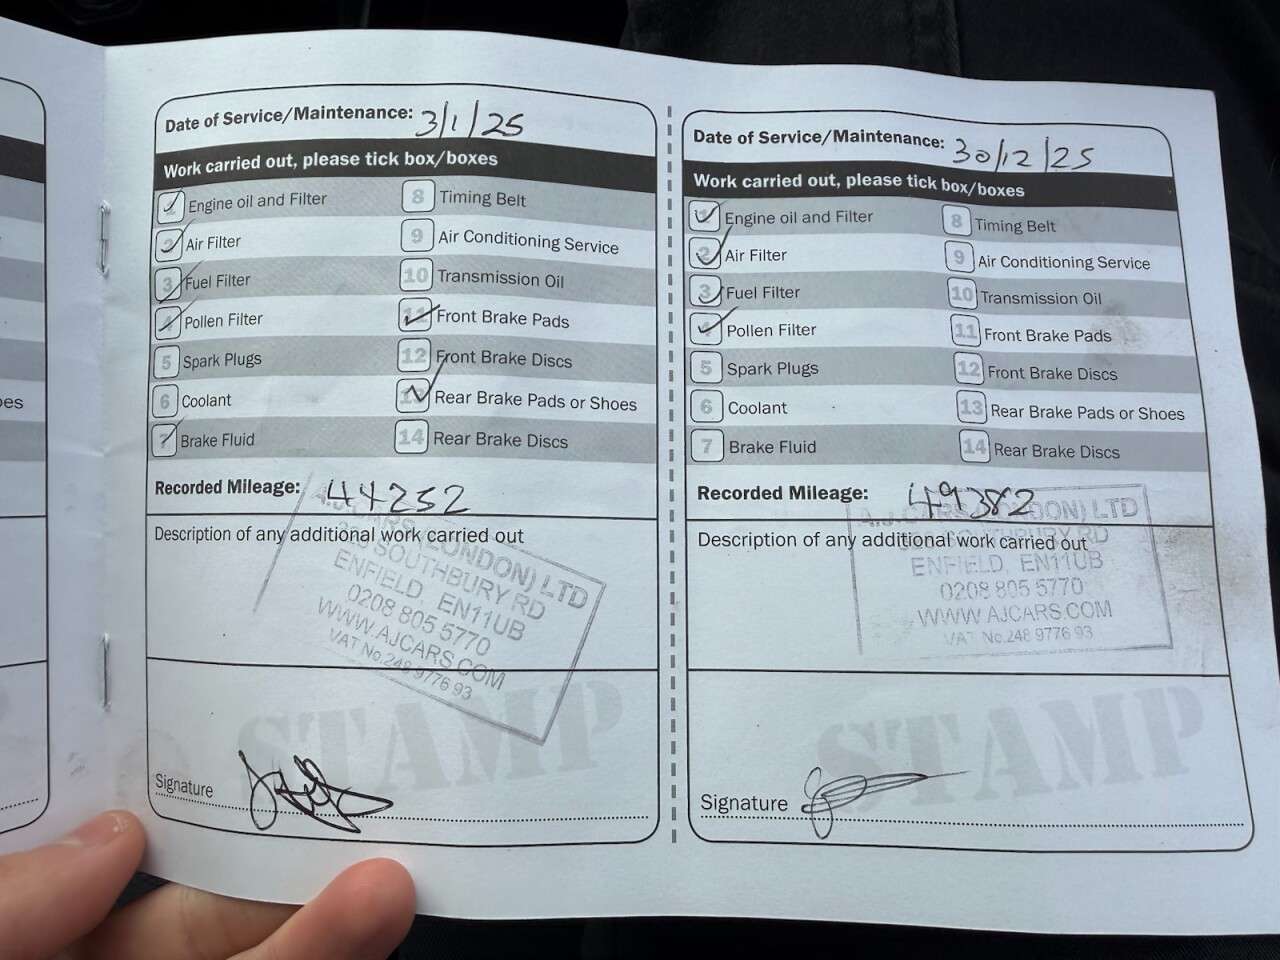 Date of Service/Maintenance: 3/1/25
Work carried out, please tick box/boxes
1 Engine oil and Filter
2 Air Filter
3 Fuel Filter
4 Pollen Filter
5 Spark Plugs
6 Coolant
7 Brake Fluid
8 Timing Belt
9 Air Conditioning Service
10 Transmission Oil
11 Front Brake Pads
12 Front Brake Discs
13 Rear Brake Pads or Shoes
14 Rear Brake Discs
Recorded Mileage: 44252
Description of any additional work carried out
A.J.CARS (LONDON) LTD
SOUTHBURY RD
ENFIELD EN11UB
0208 805 5770
WWW.AJCARS.COM
VAT No.248 9776 93
STAMP
Signature
Date of Service/Maintenance: 30/12/25
Work carried out, please tick box/boxes
1 Engine oil and Filter
2 Air Filter
3 Fuel Filter
Pollen Filter
5 Spark Plugs
6 Coolant
7 Brake Fluid
8 Timing Belt
9 Air Conditioning Service
10 Transmission Oil
11 Front Brake Pads
12 Front Brake Discs
13 Rear Brake Pads or Shoes
14 Rear Brake Discs
Recorded Mileage: 49382
Description of any additional work carried out
A.J.CARS (LONDON) LTD
SOUTHBURY RD
ENFIELD, EN11UB
0208 805 5770
WWW.AJCARS.COM
VAT No.248 9776 93
STAMP
Signature